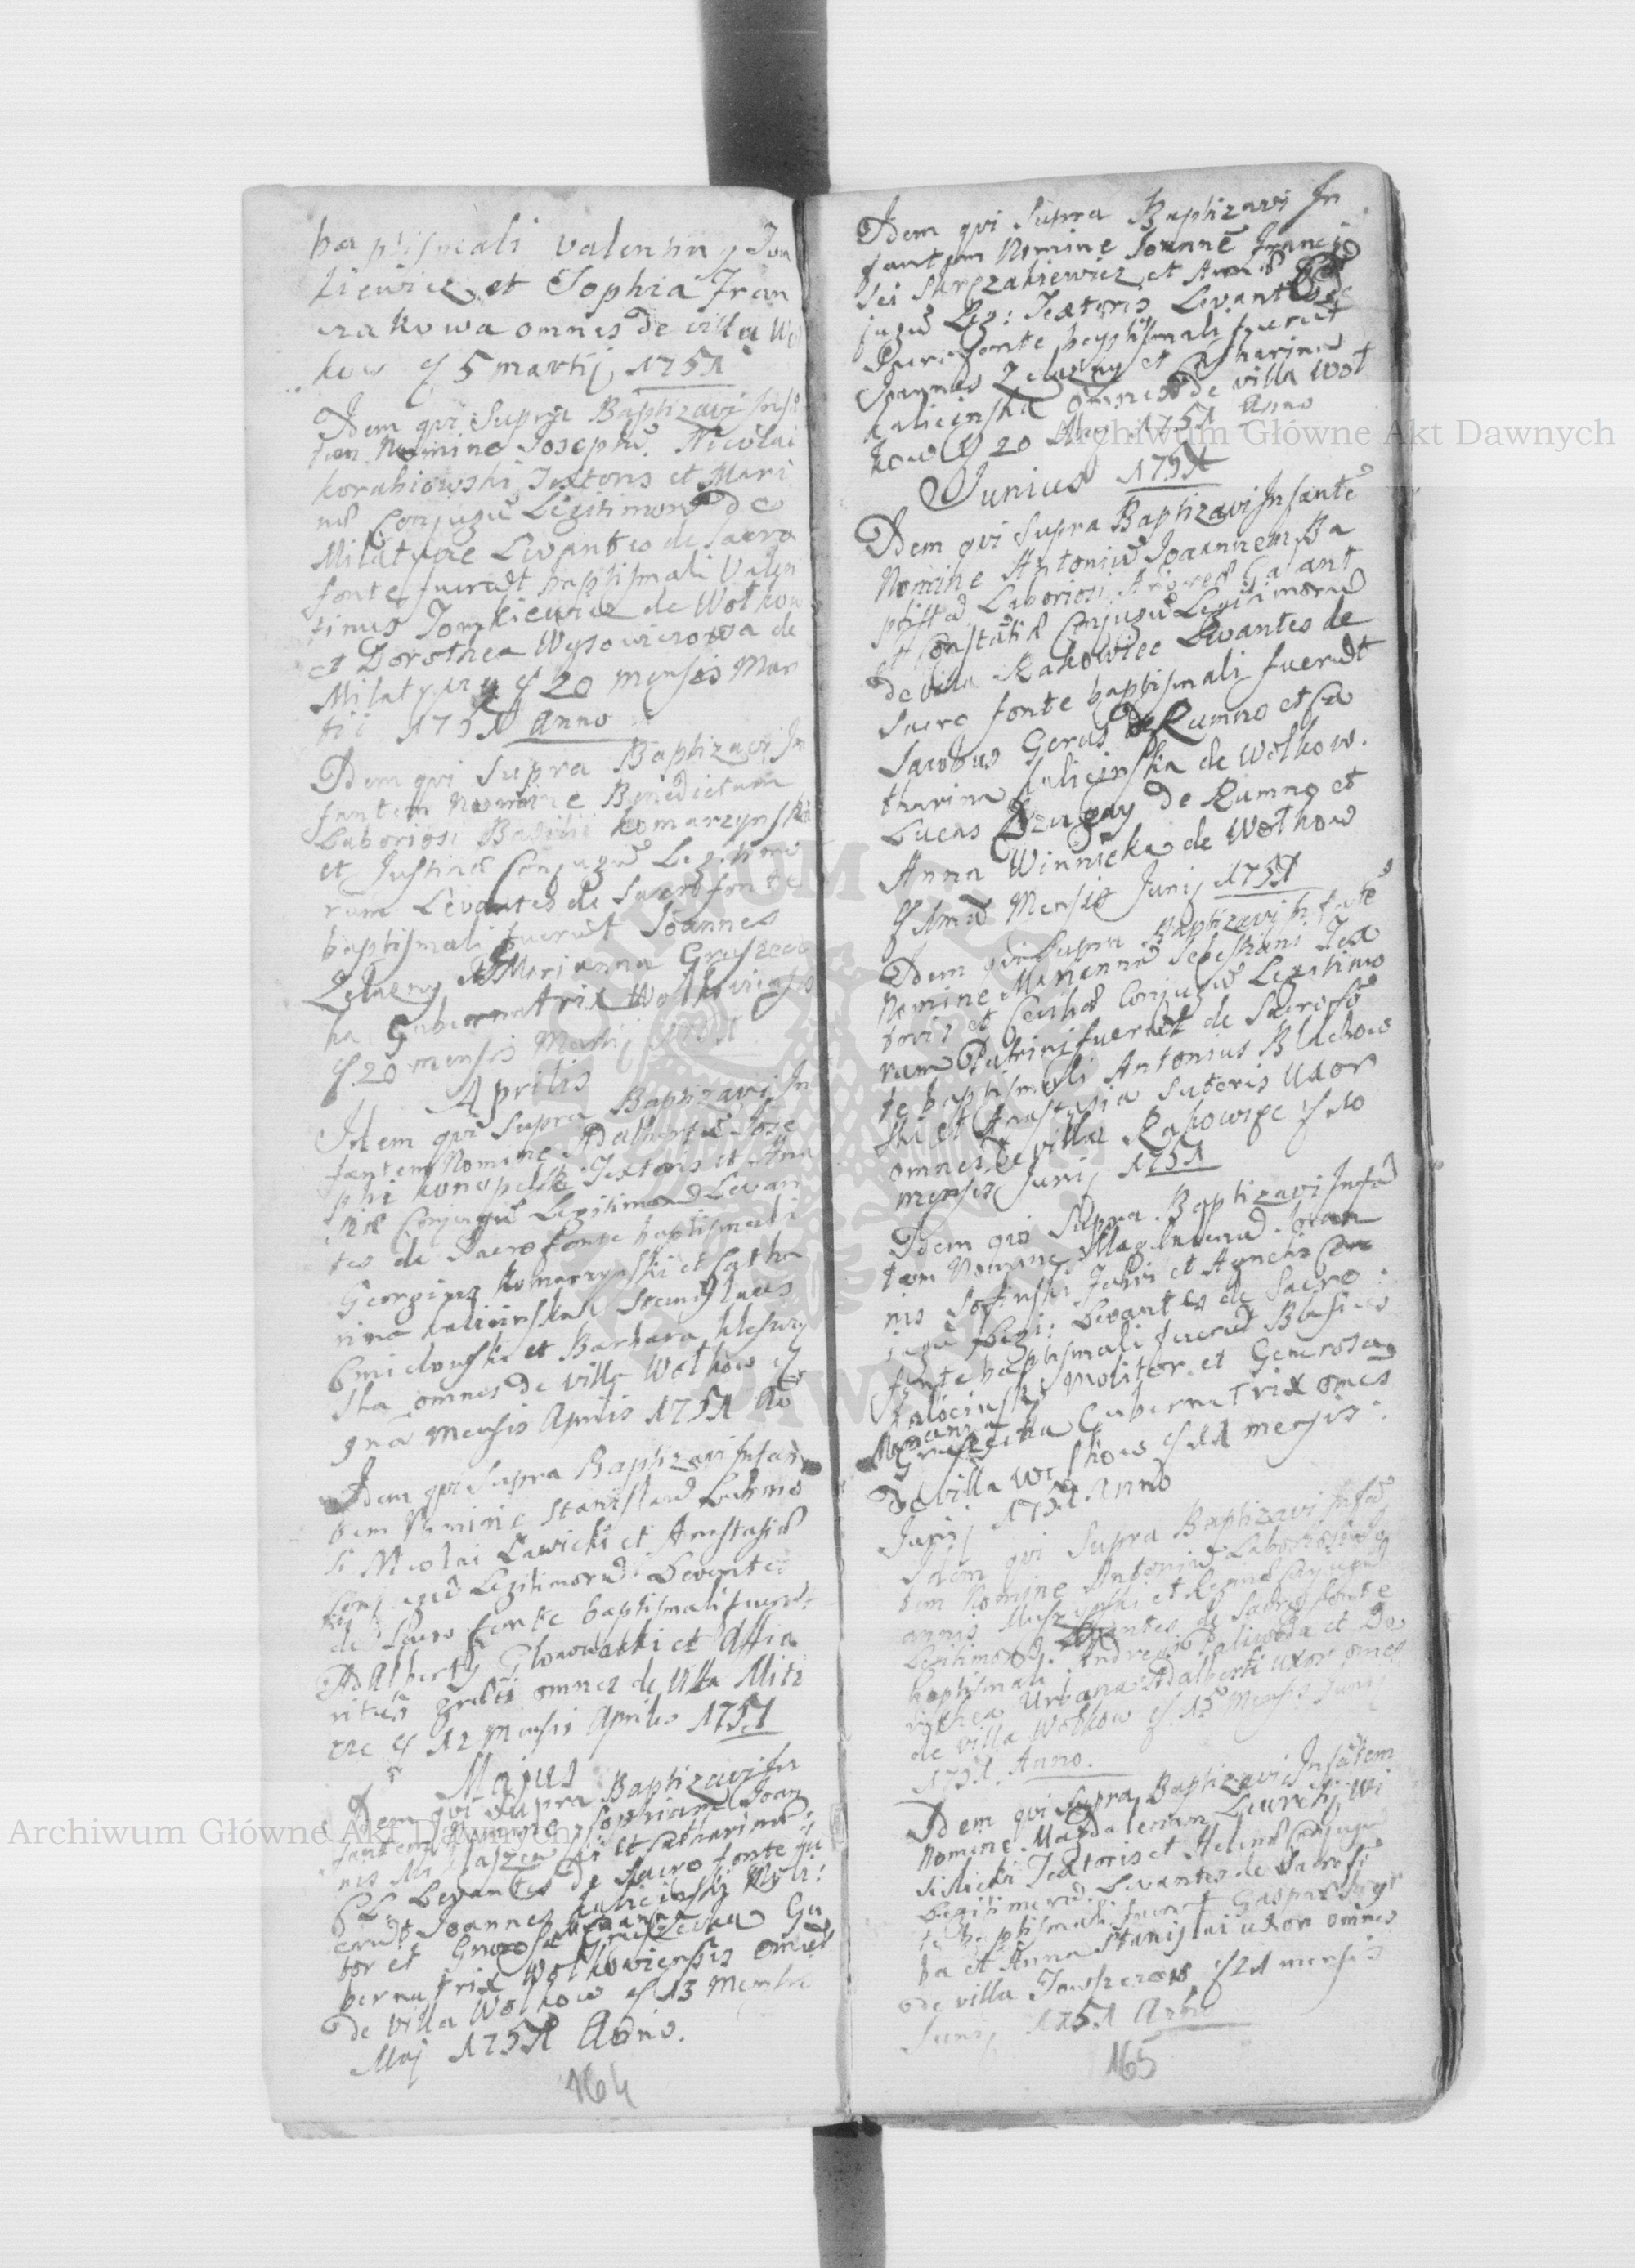 baptismali Valentin Jon
kiewicz et Sophia Fran
czakowa omnes de villa Woł
kow 5 martij 1751
Idem qvi Supra Baptizavi Infa
tem Nomine Josephū Nicolai
korabiowski Textoris et Mari
nae Conjugū Legitimorū De
Milatycze Levantes de Sacro
fonte fuerūt baptismali Valen
tinus Jonkiewicz de Wołkow
et Dorothea Wysowiczowa de
Milatycze 20 mensis Mar
tii 1751 Anno
Idem qvi Supra Baptizavi In
fantem Nomine Benedictum
Laboriosi Basilii komarzynski
et Justinae Conjugū Legitimo
rum Levantes de Sacro fonte
baptismali fuerūt Joannes
Zelazny et Marianna Gruszec
ka Gubernatrix Wołkoviensis
20 mensis Martij 1751
Aprilis
Idem qvi Supra Baptizavi In
fantem Nomine Adalbertū Jose
phi konopelski Textoris et Anna
Conjugū Legitimorū Levan
tes de Sacro fonte baptismali
Georgius komarzynski et Catha
rina kalicinska Stanislaus
et Barbara
ska omnes de villa Wołkow
9na Mensis Aprilis 1751
Idem qvi Supra Baptizavi Infan
tem Nomine Stanislaū Laborio
si Nicolai Ławicki et Anastasiae
Conjugū Legitimorū Levantes
de Sacro fonte baptismali fuerūt
Adalbertus Głowacki et
omnes de Villa Mila
cze 12 Mensis Aprilis 1751
Majus
Idem qvi Supra Baptizavi In
fantem Nomine Sophiam Joan
nis et Catharinae
Levantes De Sacro fonte fu
erūt Joannes kalicinski Moli:
tor et Grosa Marianna Gruszecka Gu
bernatrix Wołkowiensis omnes
De Villa Wołkow 13 Mensis
Maj 1751 Anno.
164
Idem qvi Supra Baptizavi In
fantem Nomine Joannē Francis
sci Skrzzakiewicz et Annae
jugū Leg: Textoris Levantes de
Sacro fonte baptismali fuerūt
Joannes Zelazny et Catharina
kalicinska omnes De villa Woł
kow 20 Maj 1751 Anno
Junius 1751
Idem qvi Supra Baptizavi Infantē
Nomine Antoniū Joannem Ba
ptistā Laboriosi
et Constātiae Conjugū Legitimorū
de villa Rakowiec Levantes de
Sacro fonte baptismali fuerūt
Jacobus Geras De Rumno et Ca
tharina kalicinska de Wołkow.
Lucas de Rumno et
Anna Winnicka de Wołkow
Mensis Junij 1751
Idem qvi Supra Baptizavi Infātē
Nomine Mariannā Sebestiani Tex
toris et Conjugū Legitimo
rum Patrini fuerūt de Sacro fō
te baptismali Antonius Blachow
ski et Anastasia Sutoris Uxor
omnes de villa Rakowiec 10
mensis Junij 1751
Idem qvi Supra Baptizavi Infā
tem Nomine Magdalenā Joan
nis et Con
jugū Legi: Levantes de Sacro:
fonte baptismali fuerūt Blasius
kalicinski Molitor. et Generosa
Marianna Gruszecka Gubernatrix omnes
De villa Wołkow 11 mensis:
Junij 1751. Anno
Idem qvi Supra Baptizavi Infā
tem Nomine Antoniū Laboriosi Jo
annis et Conjugū
Legitimorū. Levantes de Sacro fonte
baptismali Andreas Paliwoda et Do
rothea Urbana Adalberti uxor omnes
de villa Wołkow 15 Mensis Junij
1751. Anno.
Idem qvi Supra Baptizavi Infātem
Nomine. Magdalenam Laurentij Wi
Textoris et Helenae Conjugū
Legitimorū. Levantes de Sacro fō
te baptismali fuerūt Gaspar
ba et Anna Stanislai uxor omnes
De villa 21 mensis
Junij 1751 Anno
165
Archiwum Główne Akt Dawnych
Archiwum Główne Akt Dawnych